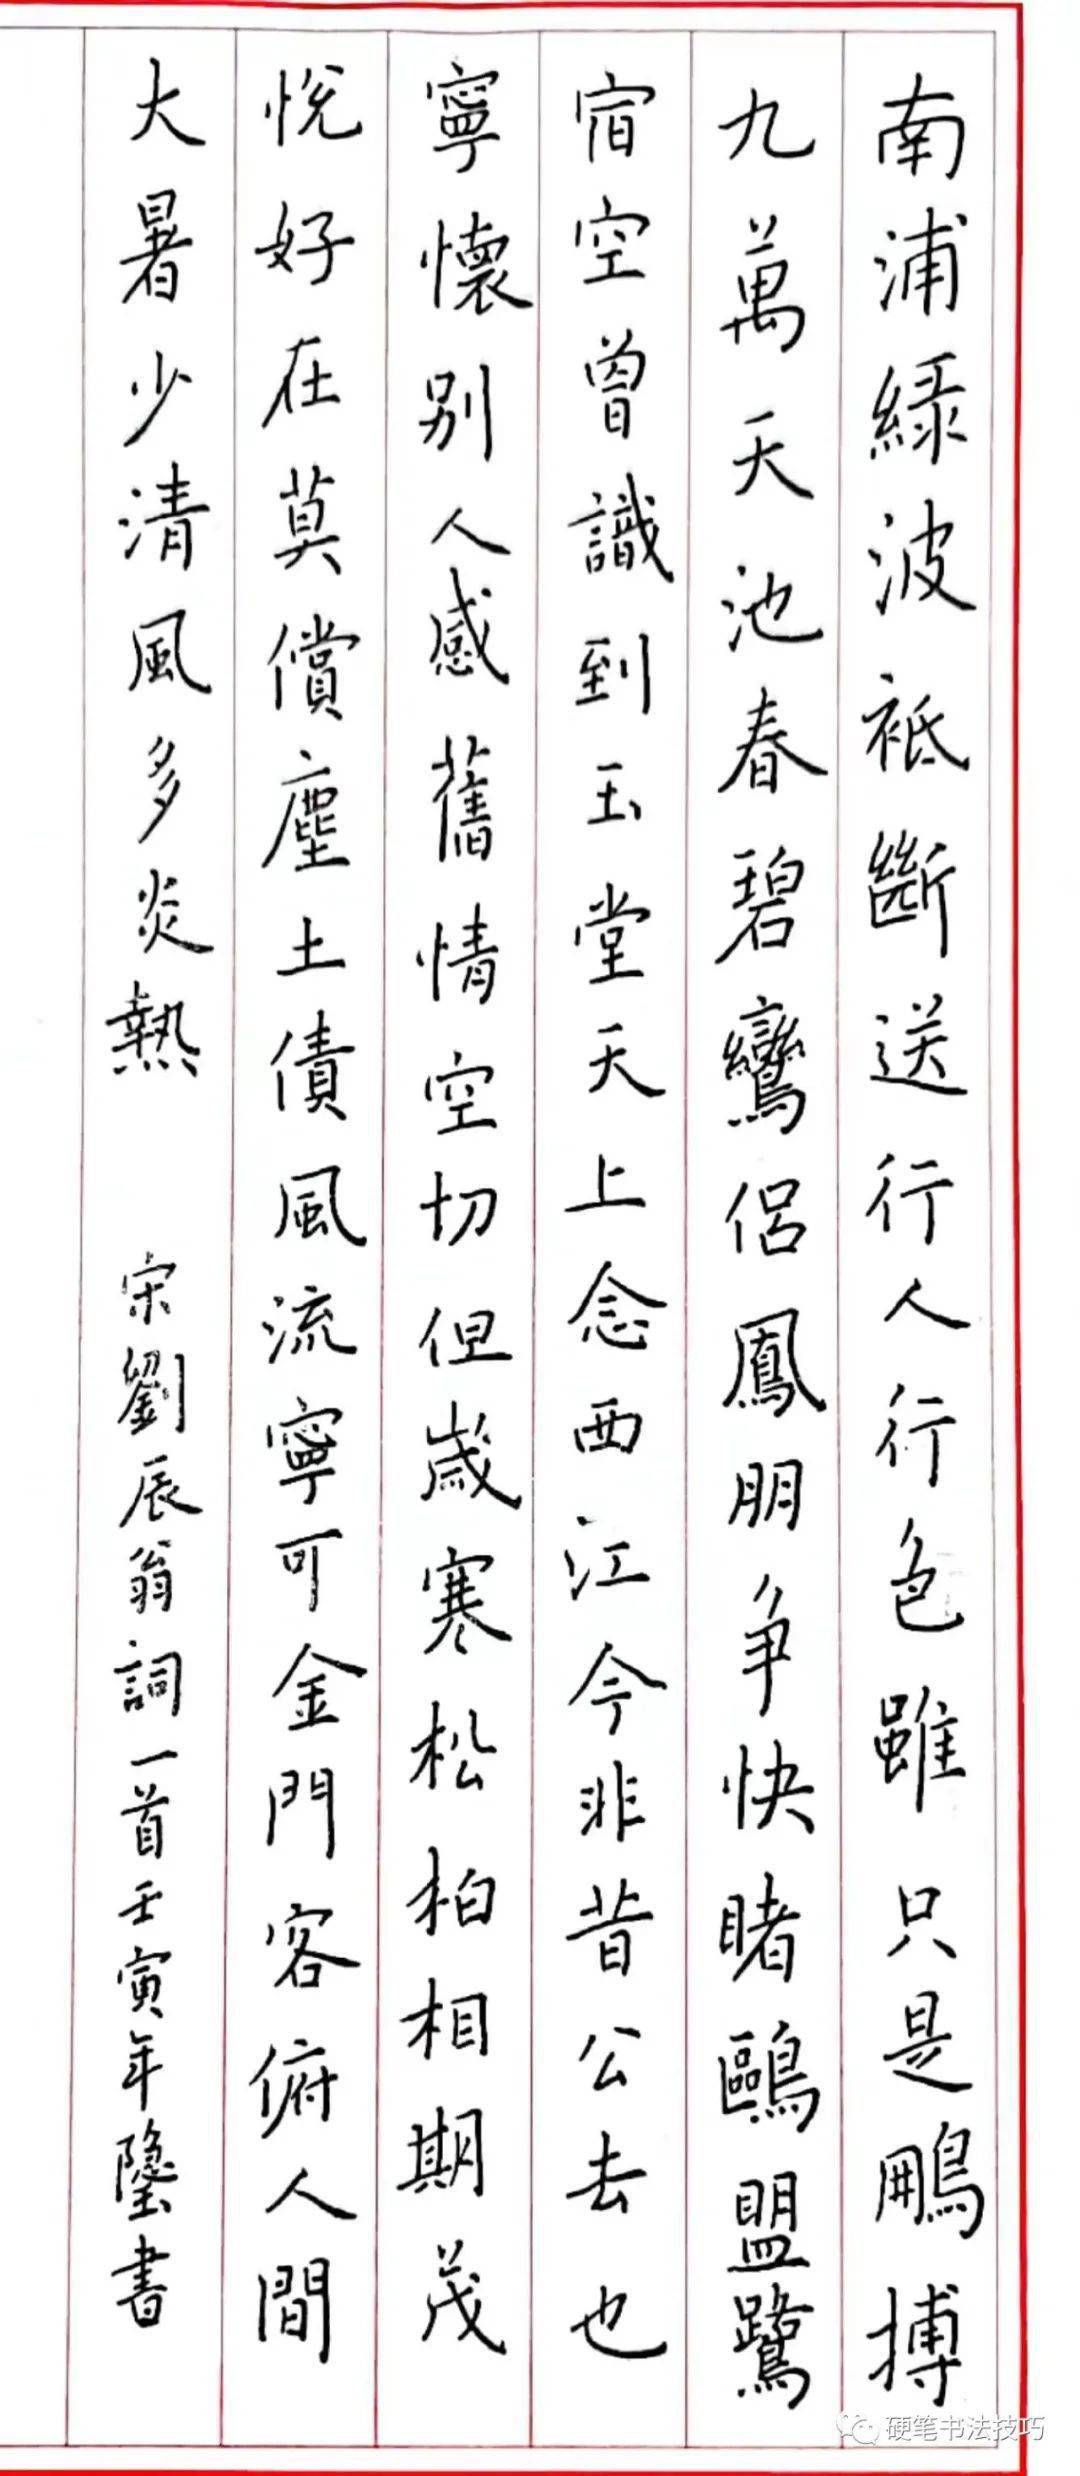 南浦綠波袛斷送行人行色雖只是鵬搏
九萬天池春碧鸞侶鳳朋爭快睹鷗盟鷺
宿空曾識到玉堂天上念西江今非昔公去也
寧懷別人感舊情空切但歲寒松柏相期茂
悅好在莫償塵土債風流寧可金門客俯人間
大暑少清風多炎熱 宋劉辰翁詞一首壬寅年隆書
硬笔书法技巧